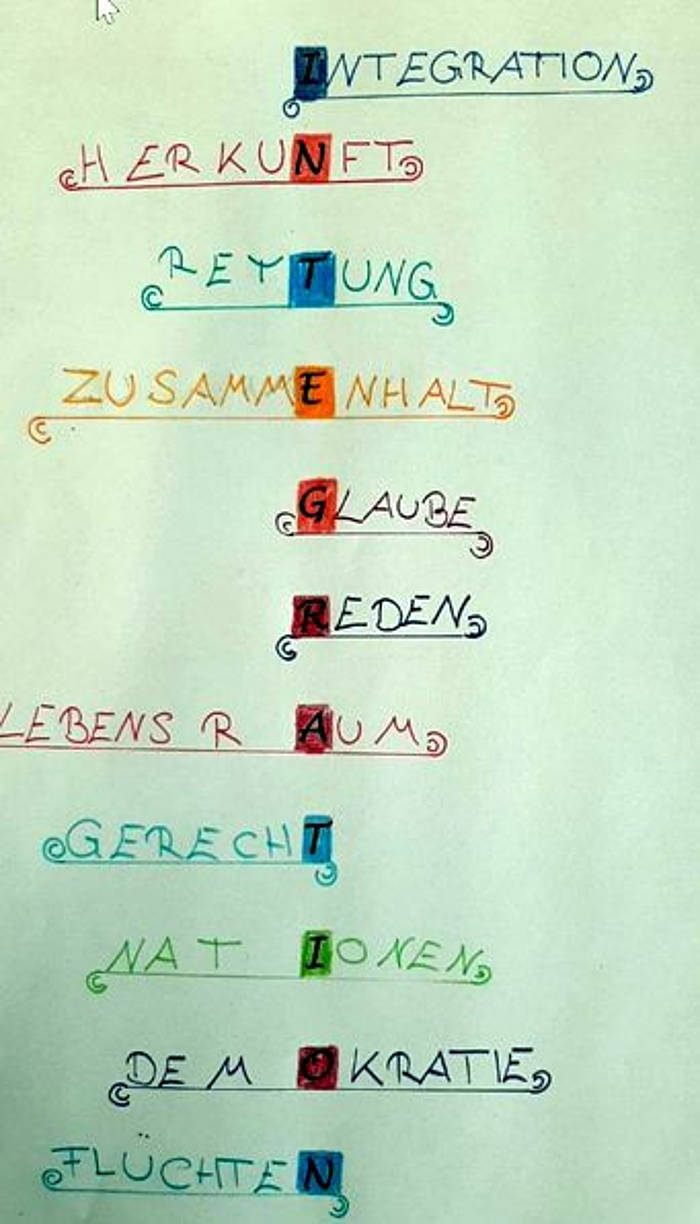 INTEGRATION
HERKUNFT
REYTUNG
ZUSAMMENHALT
GLAUBE
REDEN
LEBENSRAUM
GERECHT
NATIONEN
DEMOKRATIE
FLÜCHTEN